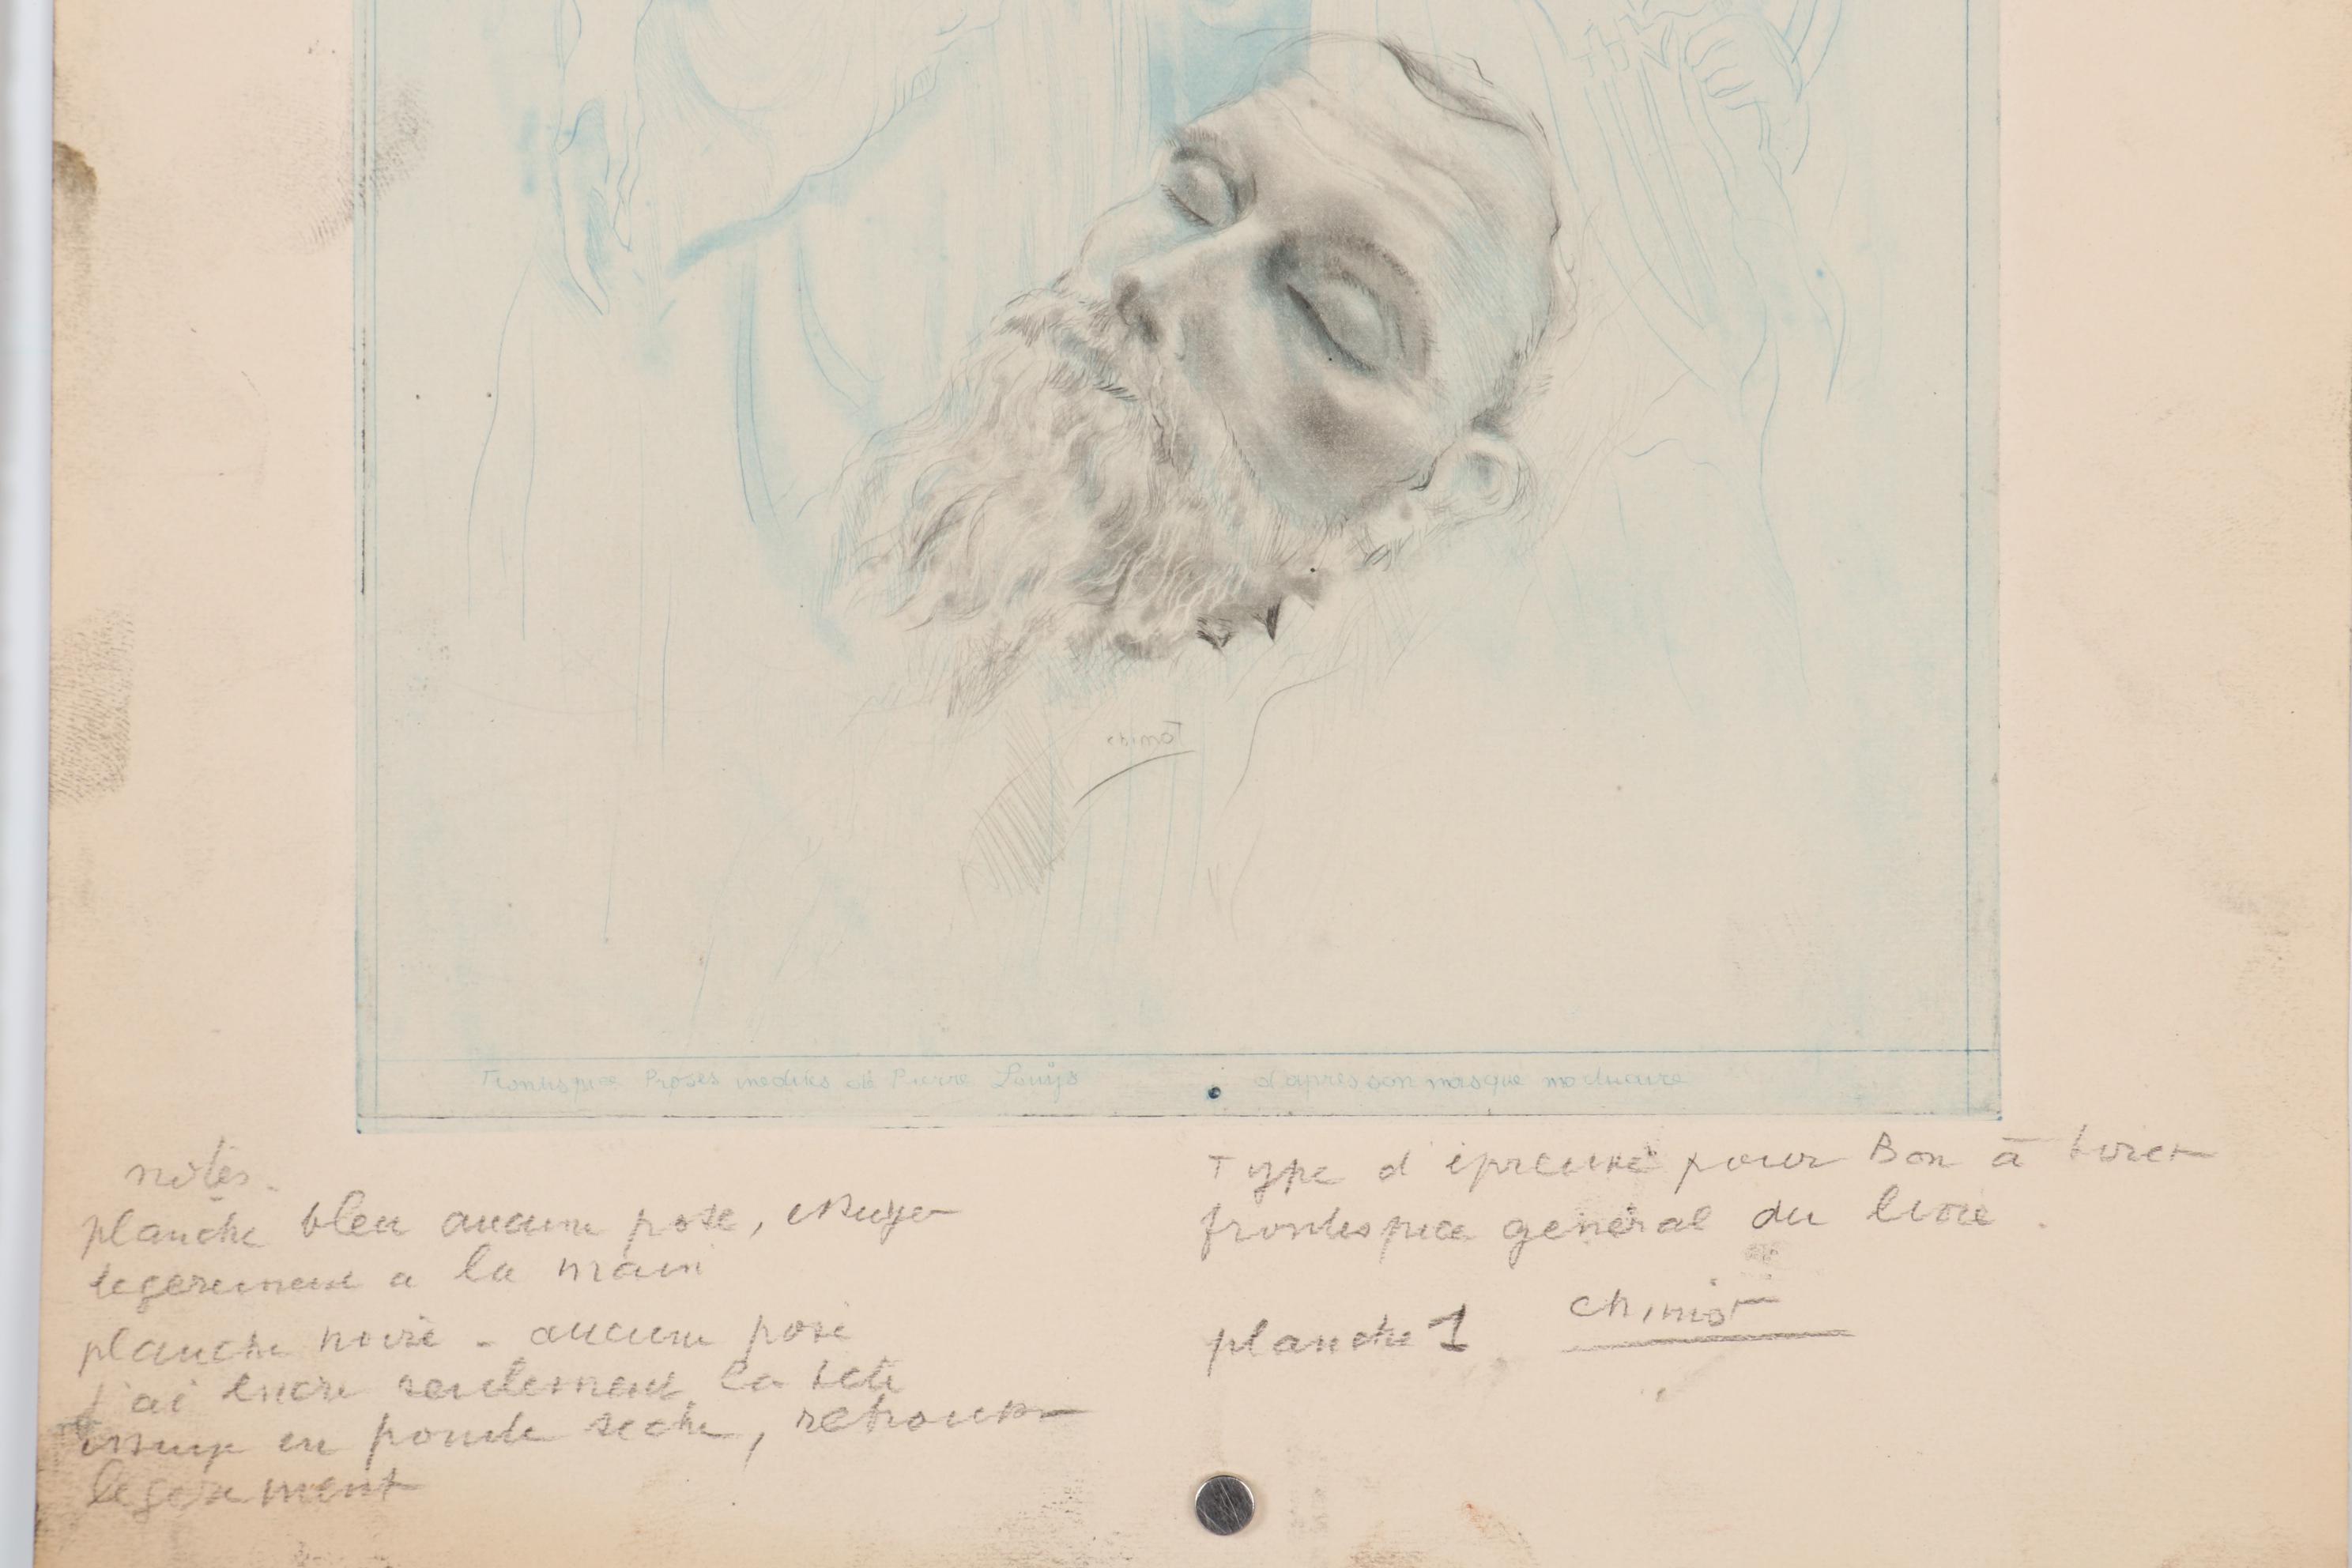 Frontispice Proses inedites de Pierre Louÿs d'après son masque mortuaire
notes.
planche bleu aucune pose, essuyer
legerement a la main
planche noire - aucune pose
j'ai encré seulement la tete
essuye en pointe seche, retrousser
legerement
Type d'épreuve pour Bon à tirer
frontispice général du livre.
planche 1